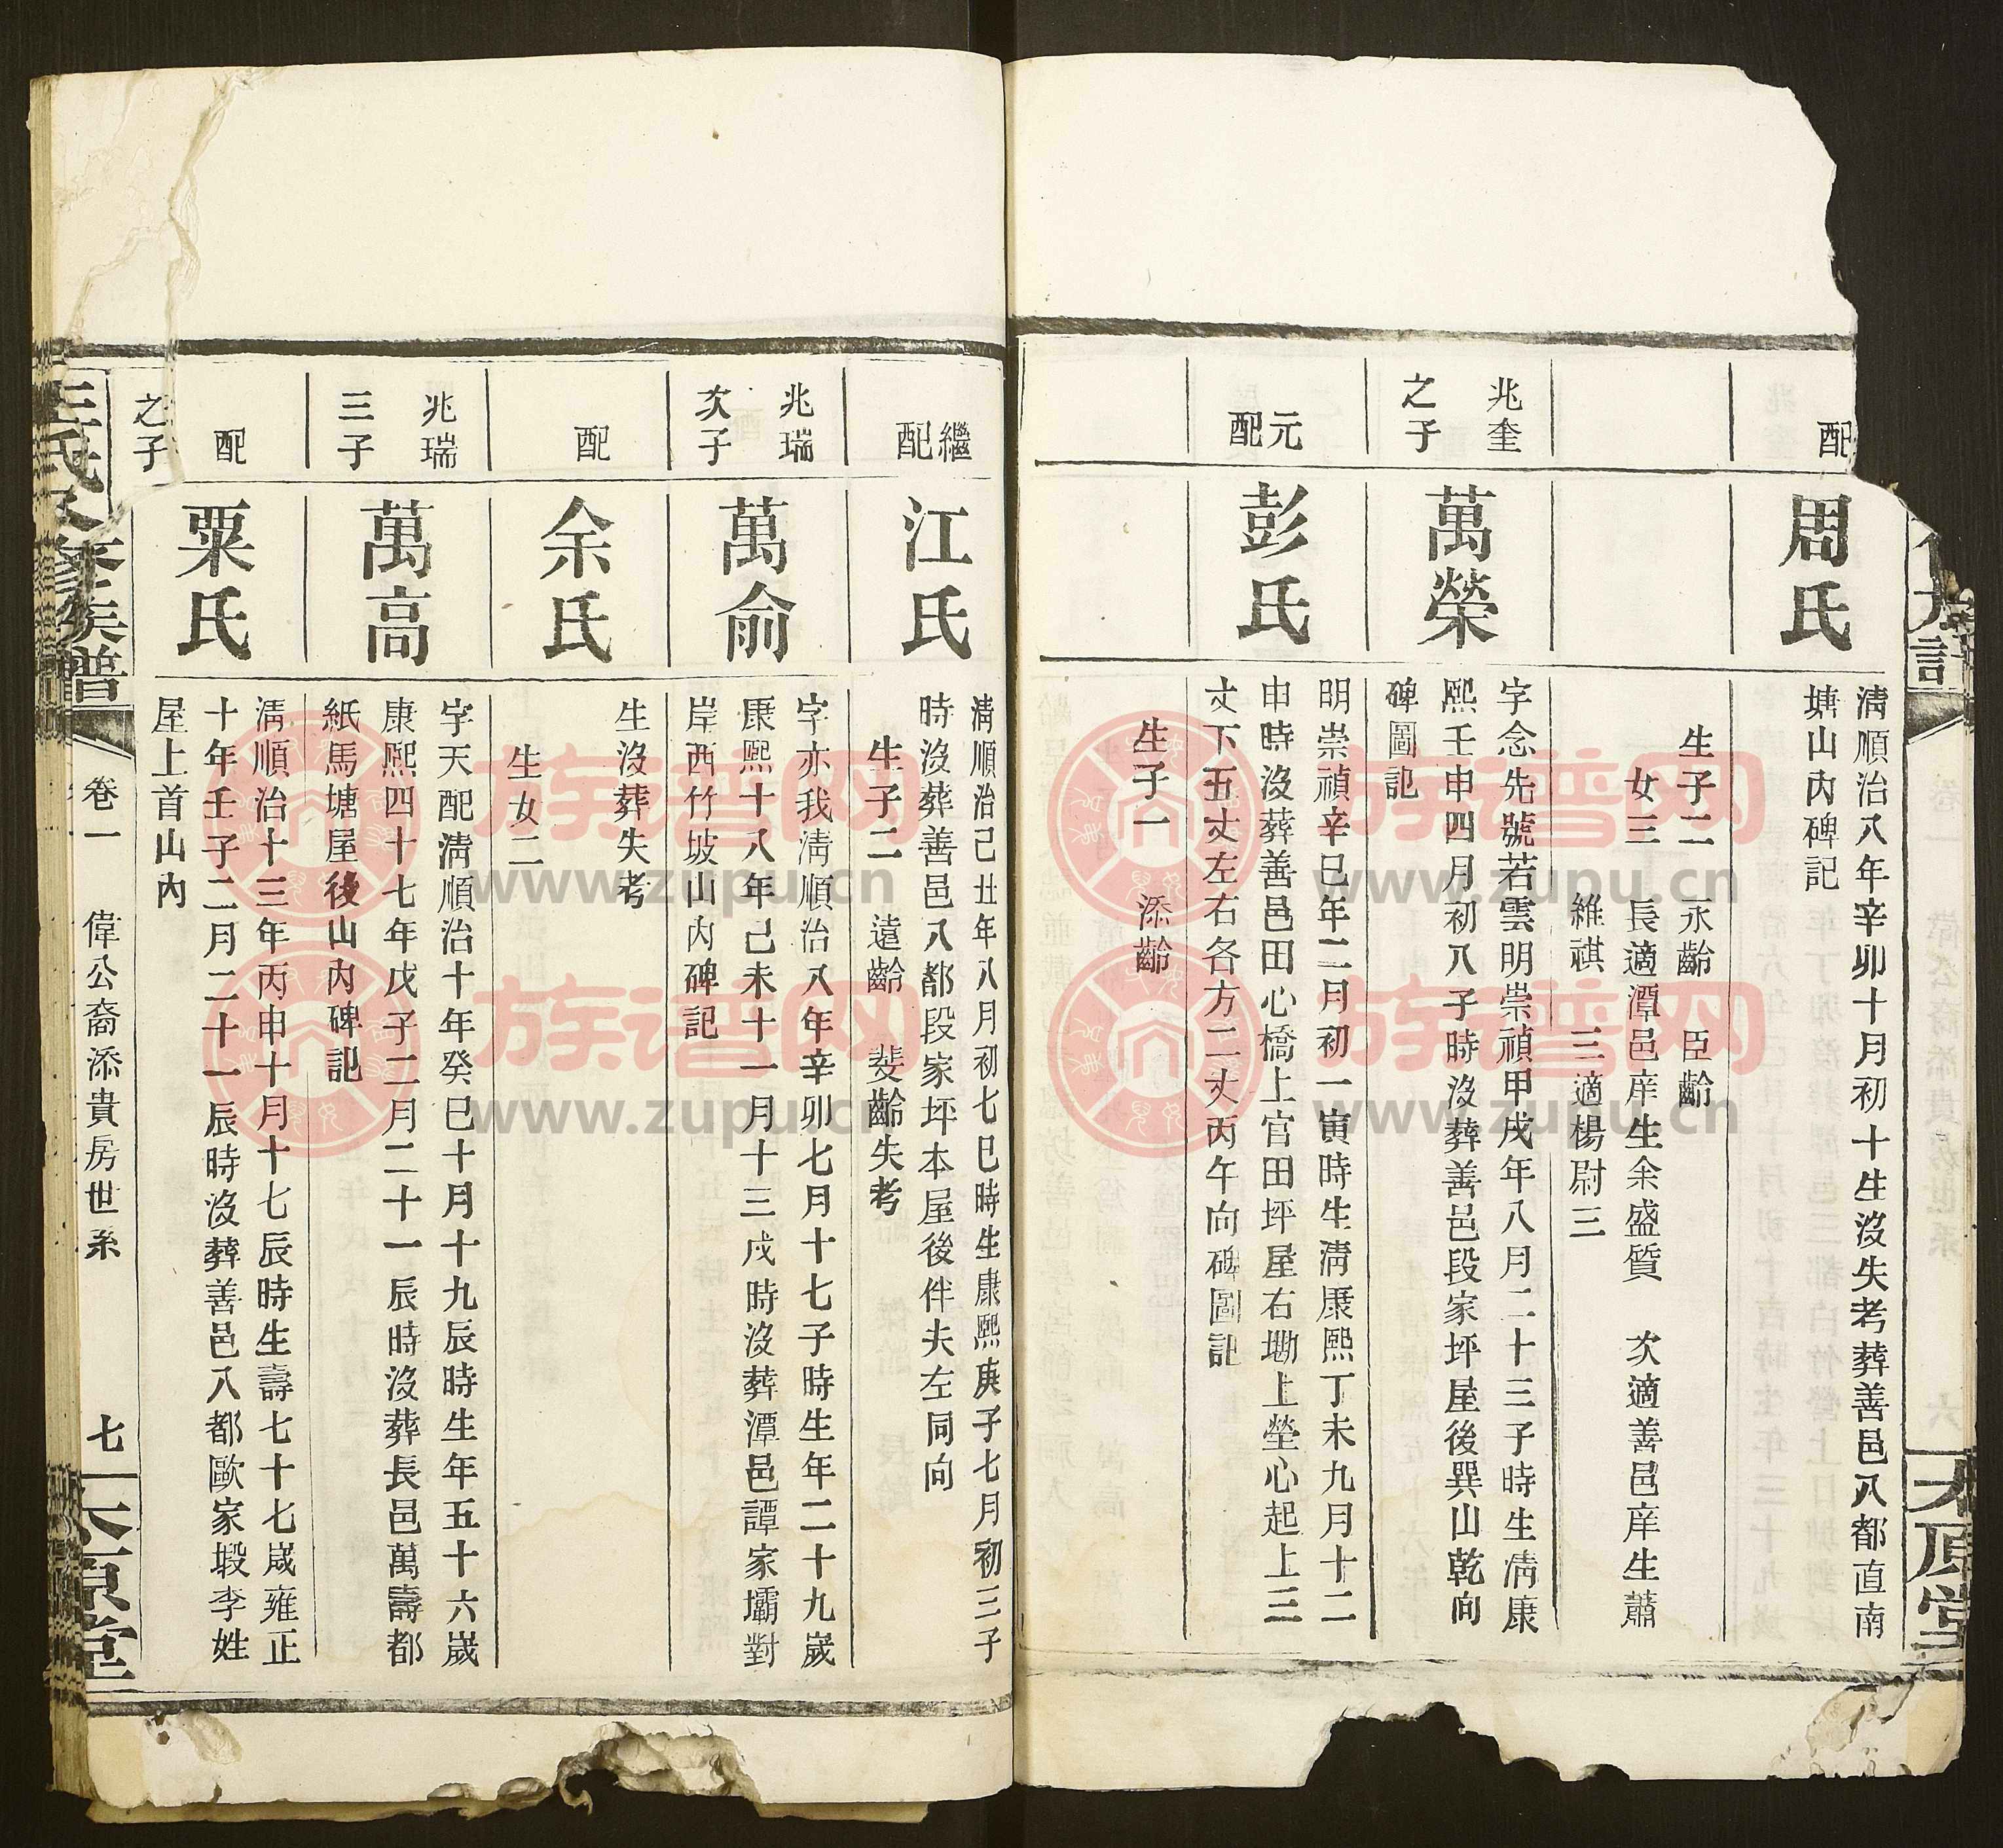 配
周氏
清順治八年辛卯十月初十生沒失考葬善邑八都直南
塘山內碑記
生子二 永齡 臣齡
女三 長適潭邑庠生余盛質 次適善邑庠生蕭
維祺 三適楊尉三
兆奎
之子
萬榮
字念先號若雲明崇禎甲戌年八月二十三子時生清康
熙壬申四月初八子時沒葬善邑段家坪屋後巽山乾向
碑圖記
元配
彭氏
明崇禎辛巳年二月初一寅時生清康熙丁未九月十二
申時沒葬善邑田心橋上官田坪屋右墈上塋心起上三
丈下五丈左右各方二丈丙午向碑圖記
生子一 添齡
太原堂
繼配
江氏
清順治己丑年八月初七巳時生康熙庚子七月初三子
時沒葬善邑八都段家坪本屋後伴夫左同向
生子二 遠齡 斐齡失考
兆瑞
次子
萬俞
字亦我清順治八年辛卯七月十七子時生年二十九歲
康熙十八年己未十一月十三戌時沒葬潭邑譚家壩對
岸西竹坡山內碑記
配
余氏
生沒葬失考
生女二
兆瑞
三子
萬高
字天配清順治十年癸巳十月十九辰時生年五十六歲
康熙四十七年戊子二月二十一辰時沒葬長邑萬壽都
紙馬塘屋後山內碑記
配
粟氏
清順治十三年丙申十月十七辰時生壽七十七歲雍正
十年壬子二月二十一辰時沒葬善邑八都歐家塅李姓
屋上首山內
之子
王氏又修族譜
卷一 偉公裔添貴房世系 七
太原堂
族谱网
www.zupu.cn
族谱网
www.zupu.cn
族谱网
www.zupu.cn
族谱网
www.zupu.cn